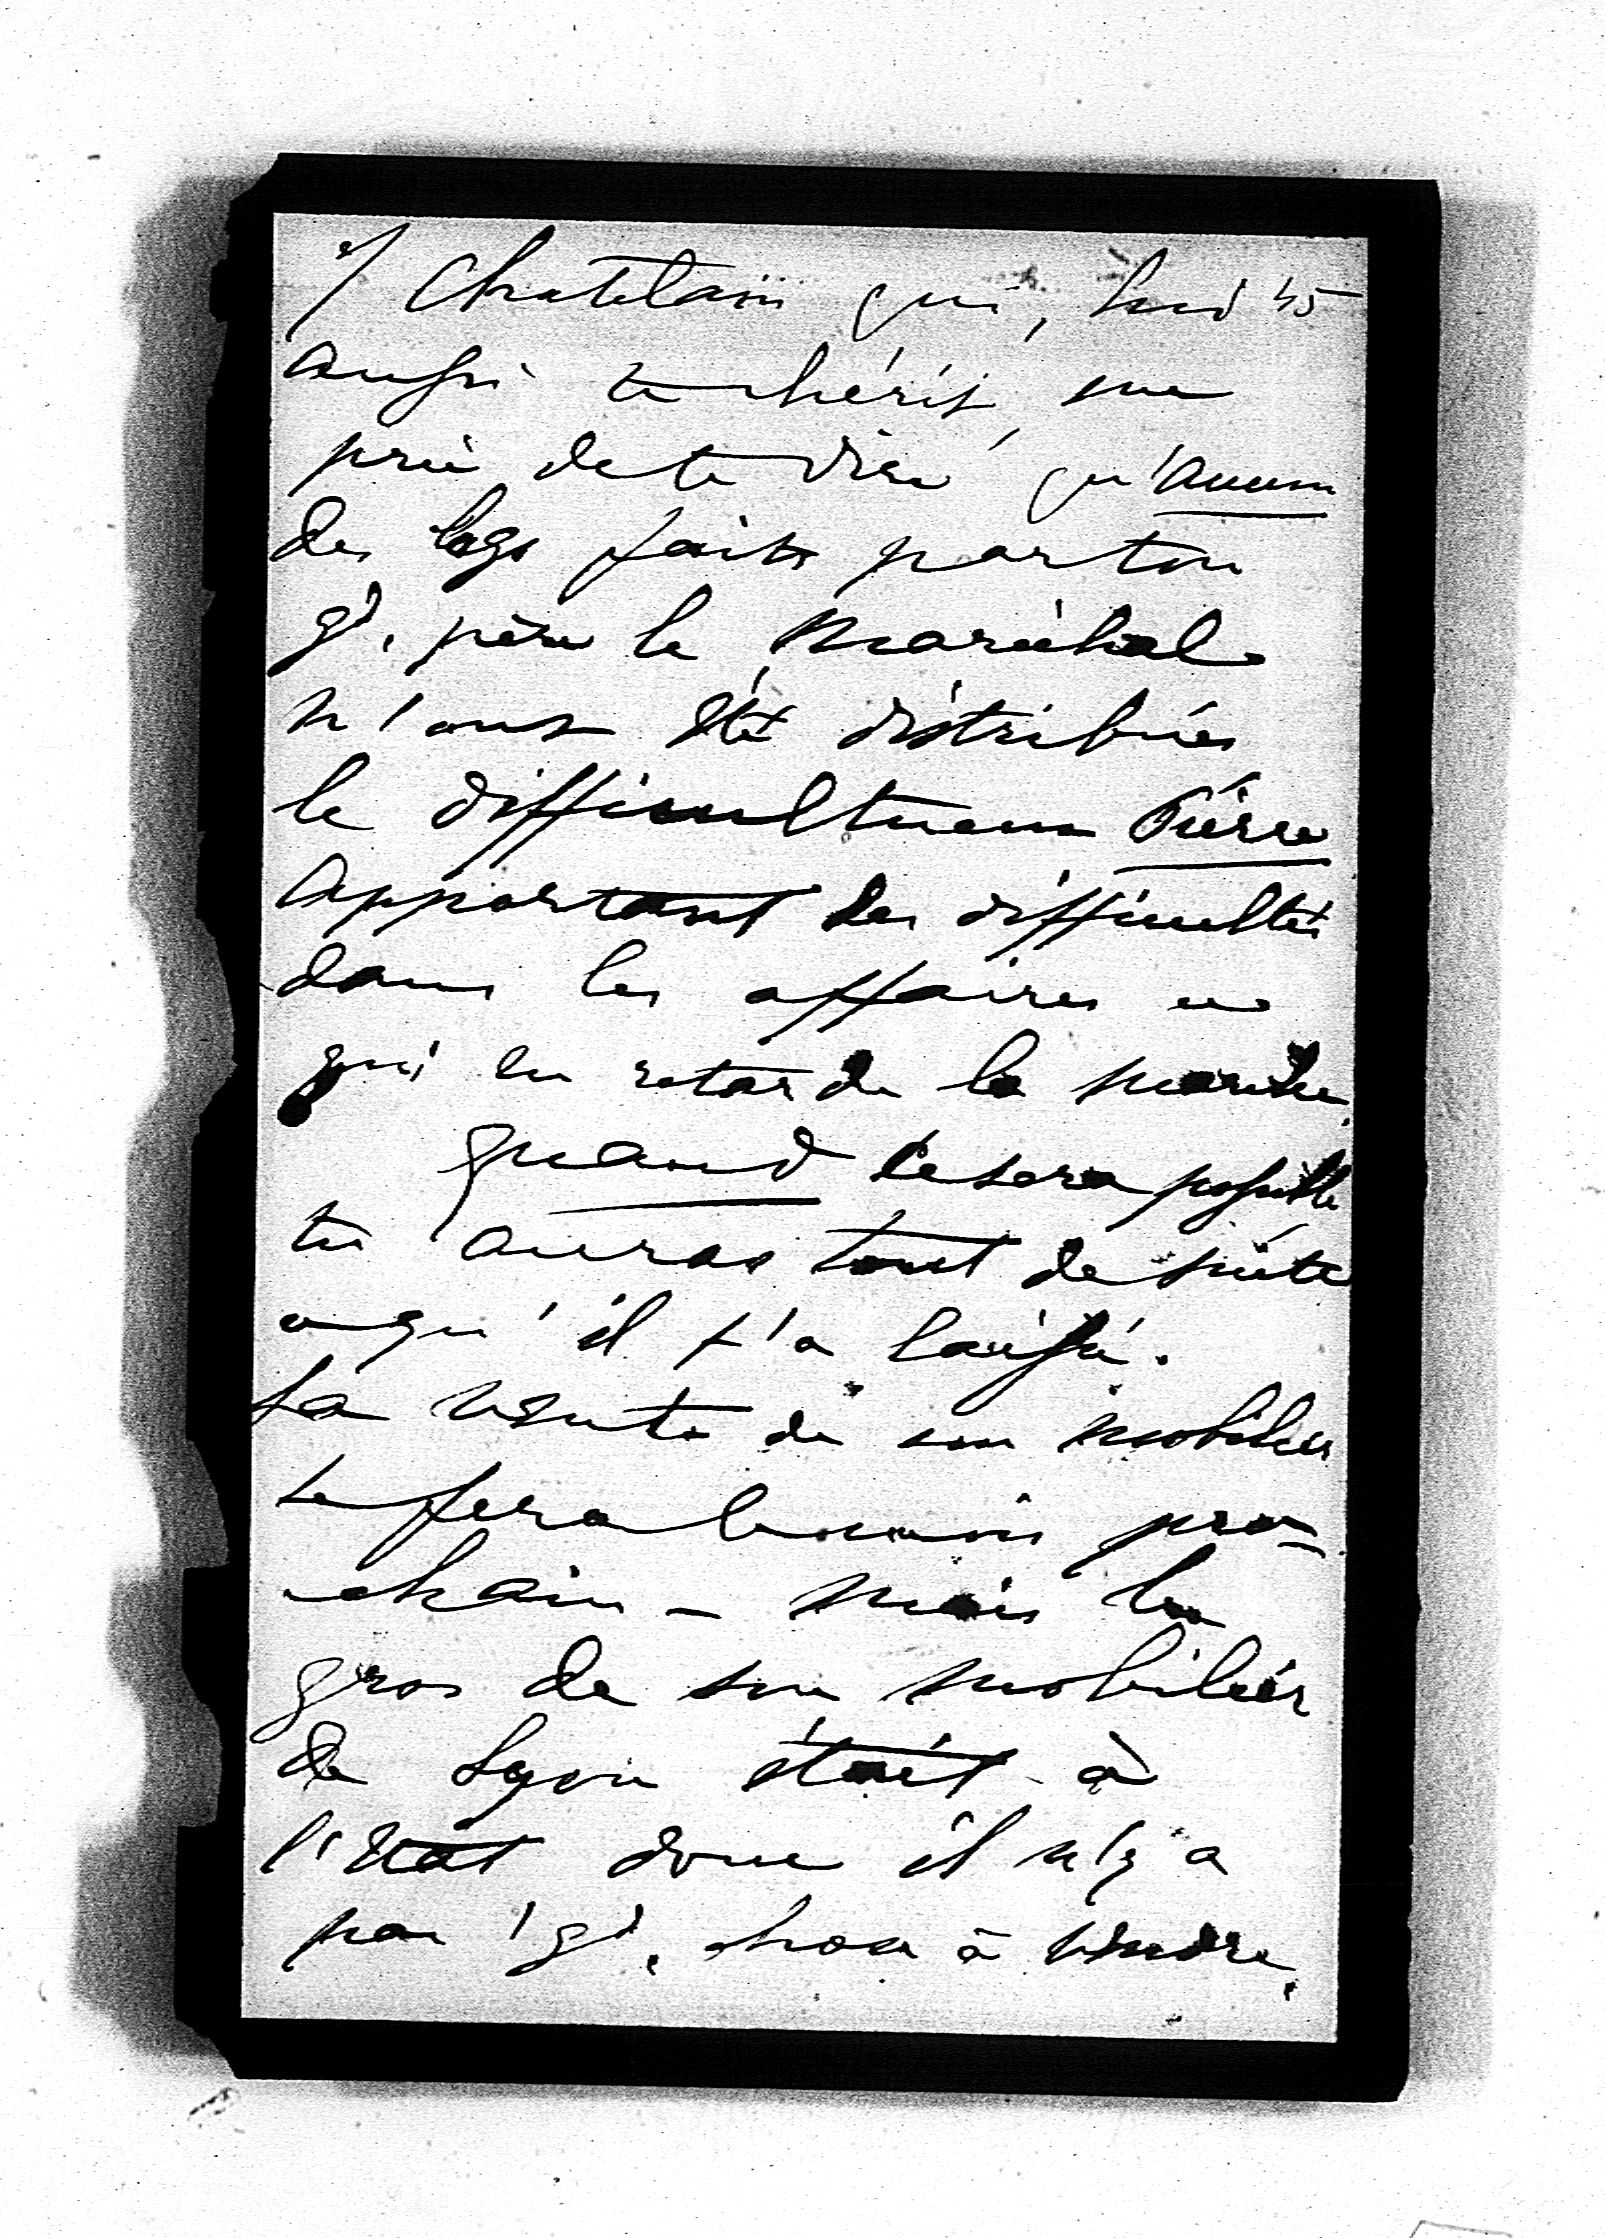 Chatelain qui, lui 45
aussi te chérit, me
prie de te dire qu'aucun
des legs faits par ton
gd. père le Maréchal
n'ont été distribués
le difficultueux Pierre
apportant des difficultés
dans les affaires ce
qui en retarde la marche.
quand ce sera possible
tu auras tout de suite
ce qu'il t'a laissé.
La vente de son mobilier
se fera le mois pro-
chain – mais le
gros de son mobilier
de Lyon était à
l'Etat donc il n'y a
pas gd. chose à vendre.